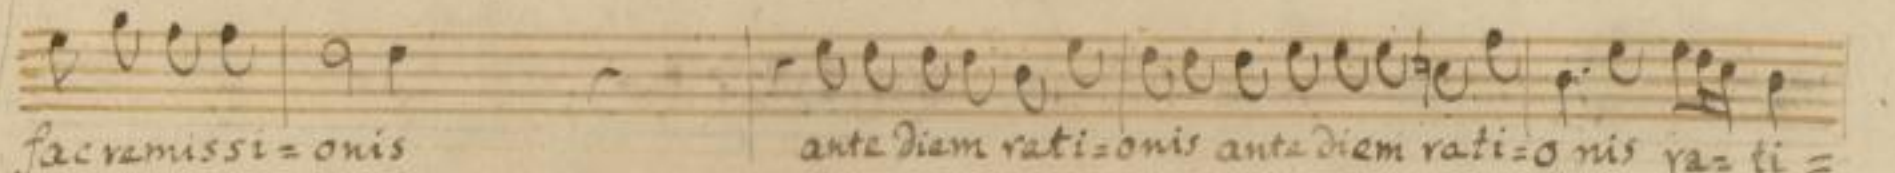 fac remissi=onis ante diem rati=onis ante diem rati=o nis ra=ti=